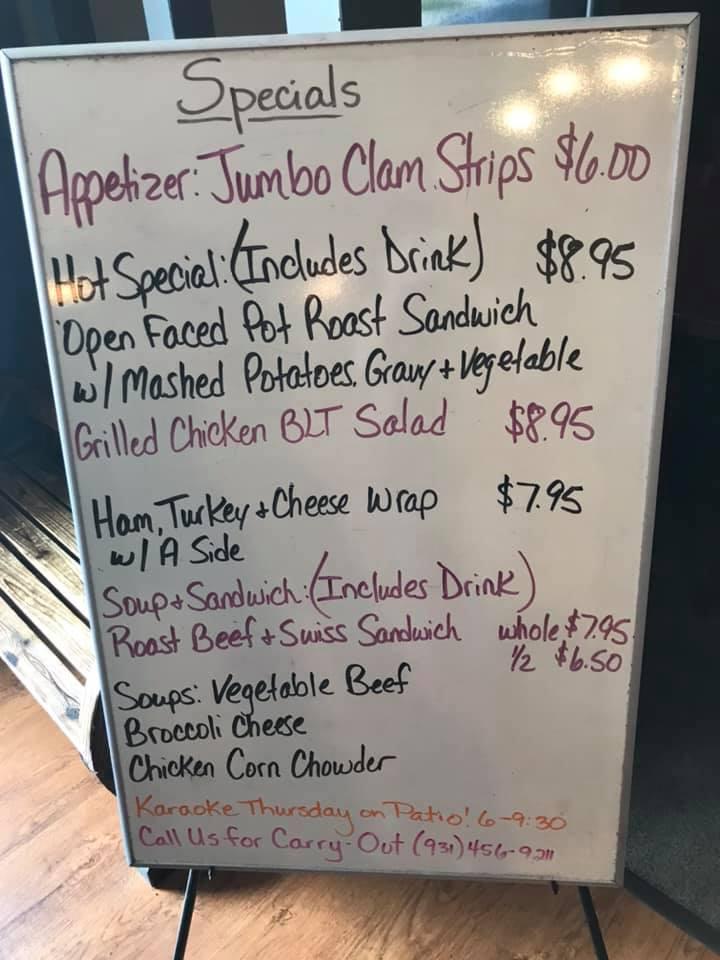 Specials
Appetizer: Jumbo Clam Strips $6.00
Hot Special: (Includes Drink) $8.95
Open Faced Pot Roast Sandwich
w/ Mashed Potatoes, Gravy + Vegetable
Grilled Chicken BLT Salad $8.95
Ham, Turkey + Cheese Wrap $7.95
w/ A Side
Soup + Sandwich: (Includes Drink)
Roast Beef + Swiss Sandwich whole $7.95
1/2 $6.50
Soups: Vegetable Beef
Broccoli Cheese
Chicken Corn Chowder
Karaoke Thursday on Patio! 6-9:30
Call Us for Carry-Out (931) 456-9211